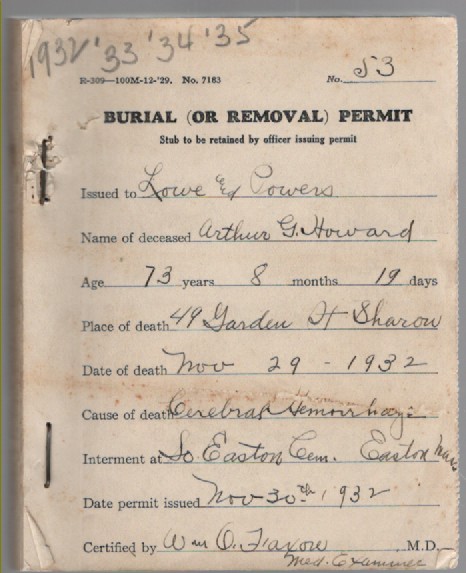 1932 '33 '34 '35
R-309—100M-12-'29. No. 7163 No. 53
BURIAL (OR REMOVAL) PERMIT
Stub to be retained by officer issuing permit
Issued to Lowe & Powers
Name of deceased Arthur G. Howard
Age 73 years 8 months 19 days
Place of death 49 Garden St Sharon
Date of death Nov 29 - 1932
Cause of death Cerebral Hemorrhage
Interment at So. Easton Cem. Easton Mass
Date permit issued Nov 30th 1932
Certified by Wm O. M.D.
Med. Examiner